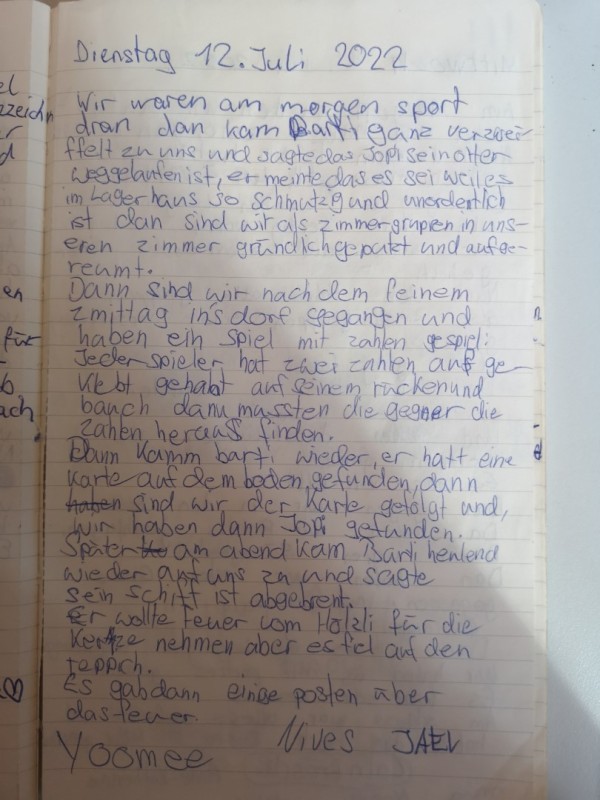 Dienstag 12. Juli 2022
el
zzeichn
er
d
en
für
-
b
ach
wir waren am morgen sport
dran dan kam Barti ganz verzwei-
ffelt zu uns und sagte das Jopi sein otter
weggelaufen ist, er meinte das es sei weil es
im Lagerhaus so schmutzig und unordentlich
ist dan sind wir als zimmergruppen in uns-
eren zimmer gründlich geputzt und aufge-
reumt.
Dann sind wir nach dem feinem
zmittag ins dorf gegangen und
haben ein spiel mit zahlen gespiel:
Jeder spieler hat zwei zahlen auf ge-
klebt gehabt auf seinem rücken und
bauch dann mussten die gegner die
zahlen heraus finden.
Dann Kamm barti wieder, er hatt eine
Karte auf dem boden gefunden, dann
haben sind wir der Karte gefolgt und,
wir haben dann Jopi gefunden.
Später am abend kam Barti heulend
wieder auf uns zu und sagte
sein schiff ist abgebrent.
Er wollte feuer vom Hölzli für die
Kertze nehmen aber es fiel auf den
teppich.
Es gab dann einige posten über
das feuer.
Yoomee Nives JAEL